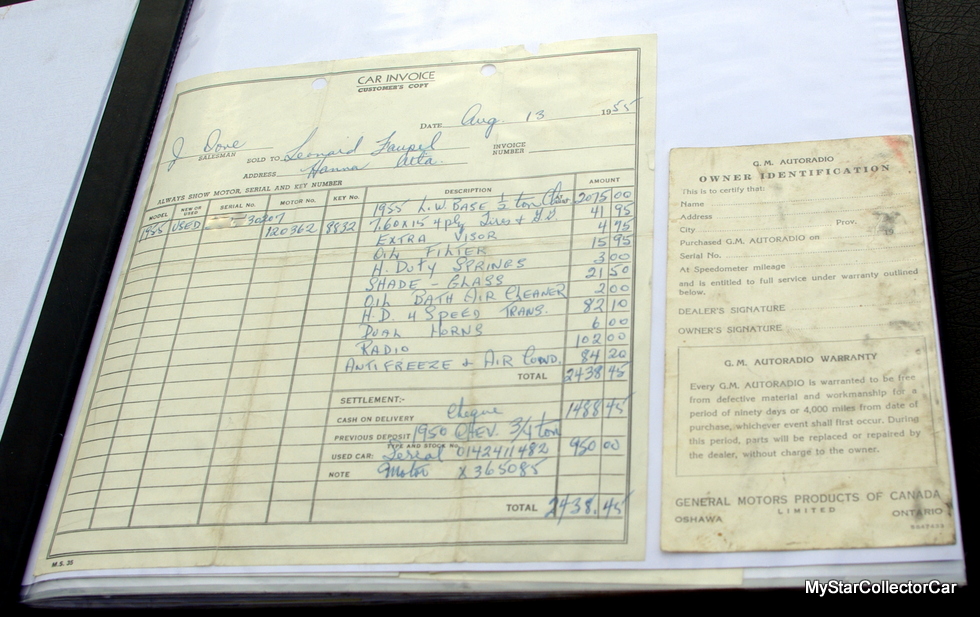 CAR INVOICE
CUSTOMER'S COPY
DATE Aug. 13 1955
J Dove
SALESMAN
SOLD TO Leonard Faupel
INVOICE NUMBER
ADDRESS Hanna Alta.
ALWAYS SHOW MOTOR, SERIAL AND KEY NUMBER
MODEL NEW OR USED SERIAL No. MOTOR No. KEY No. DESCRIPTION AMOUNT
1955 USED 30207 120362 8832 1955 L.W BASE 1/2 ton 2075 00
7.60x15 4 ply Tires & 41 95
EXTRA VISOR 4 95
OIL FILTER 15 95
H. DUTY SPRINGS 3 00
SHADE - GLASS 21 50
OIL BATH AIR CLEANER 2 00
H.D. 4 SPEED TRANS. 82 10
DUAL HORNS 6 00
RADIO 102 00
ANTIFREEZE & AIR COND. 84 20
TOTAL 2438 45
SETTLEMENT:-
CASH ON DELIVERY Cheque 1488 45
PREVIOUS DEPOSIT 1950 CHEV. 3/4 ton
TYPE AND STOCK No.
USED CAR: Serial 0142411482 950 00
NOTE Motor X365085
TOTAL 2438.45
M.S. 35
G.M. AUTORADIO
OWNER IDENTIFICATION
This is to certify that:
Name
Address
City Prov.
Purchased G.M. AUTORADIO on 19
Serial No.
At Speedometer mileage
and is entitled to full service under warranty outlined
below.
DEALER'S SIGNATURE
OWNER'S SIGNATURE
G.M. AUTORADIO WARRANTY
Every G.M. AUTORADIO is warranted to be free
from defective material and workmanship for a
period of ninety days or 4,000 miles from date of
purchase, whichever event shall first occur. During
this period, parts will be replaced or repaired by
the dealer, without charge to the owner.
GENERAL MOTORS PRODUCTS OF CANADA
LIMITED
OSHAWA ONTARIO
MyStarCollectorCar